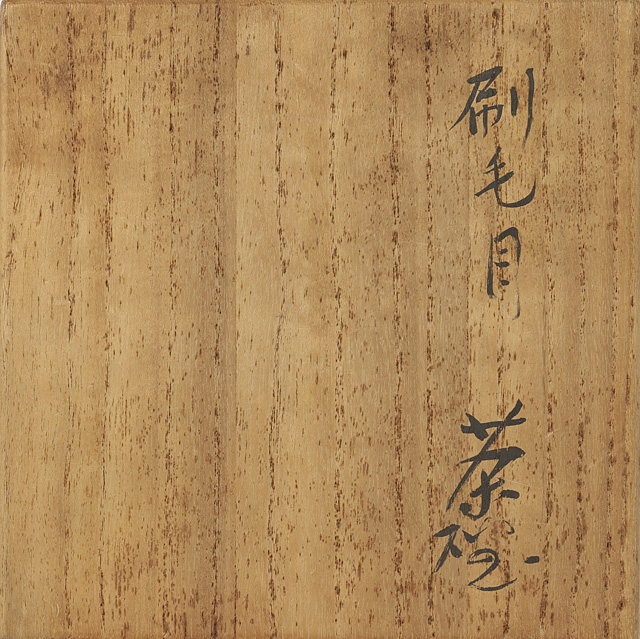 刷毛目 茶碗